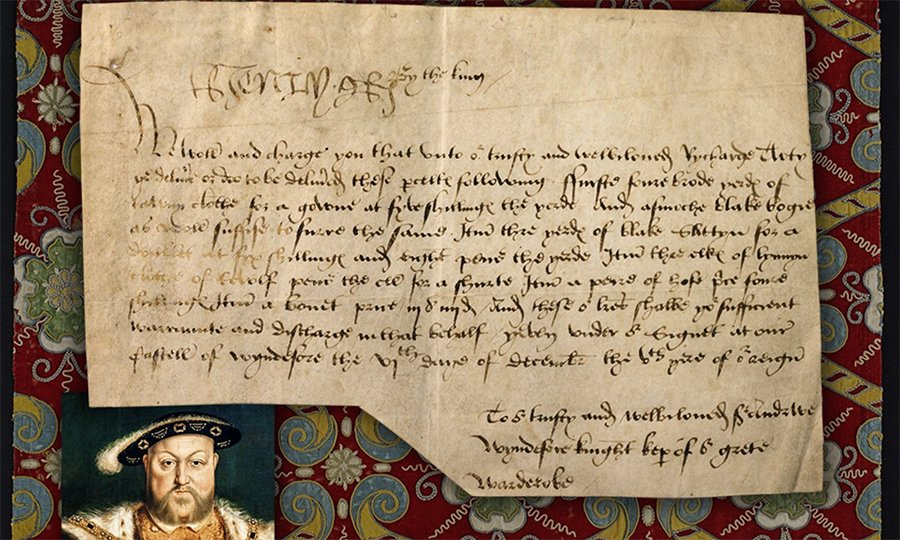 HENRY R By the king
We woll and charge you that vnto oʳ trusty and welbiloued Rycharge
ye deliuer or doo to be deliuerd these following ffurste foure brode yerdes of
tawny clothe for a gowne at fyve shillinges the yerde And asmoche blake bogie
as woll suffise to furre the same Itm thre yerdes of blake Sattyn for a
doublett at syx shillinges and eight pene the yerde Itm thre elles of lynnyn
clothe of twolf pene the ell for a shurte Itm a peire of hose price foure
shillinges Itm a bonet price iijs iiijd And these oʳ lres shalbe yoʳ sufficient
warraunte and discharge in that behalf yeven vnder oʳ Signett at our
Castell of wyndesore the vjth daye of decembre the yere of oʳ reign
To oʳ trusty and welbiloued Sʳ Andrewe
Wyndesore knight kepʳ of oʳ grete
Warderobe